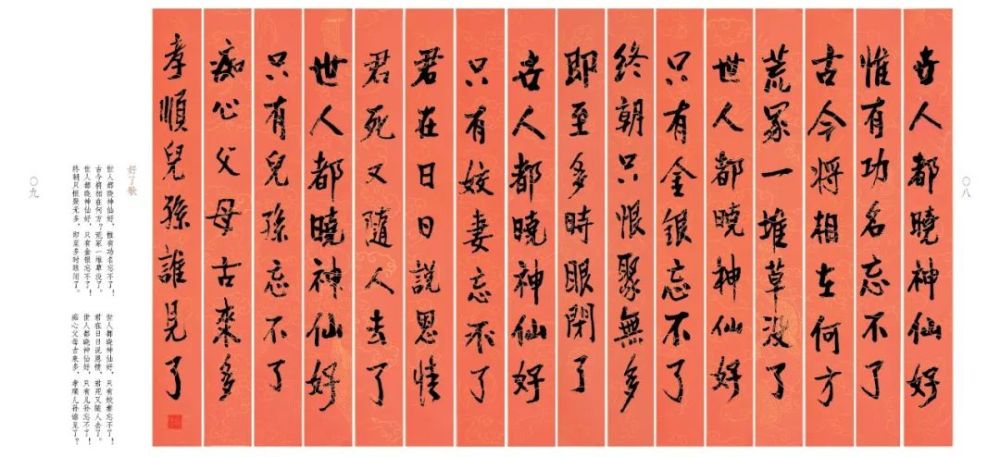 〇八
世人都曉神仙好
惟有功名忘不了
古今将相在何方
荒冢一堆草没了
世人都曉神仙好
只有金銀忘不了
終朝只恨聚無多
即至多時眼閉了
世人都曉神仙好
只有姣妻忘不了
君在日日説恩情
君死又隨人去了
世人都曉神仙好
只有兒孫忘不了
痴心父母古來多
孝順兒孫誰見了
好了歌
世人都晓神仙好，惟有功名忘不了！
古今将相在何方？荒冢一堆草没了。
世人都晓神仙好，只有金银忘不了！
终朝只恨聚无多，即至多时眼闭了。
世人都晓神仙好，只有姣妻忘不了！
君在日日说恩情，君死又随人去了。
世人都晓神仙好，只有儿孙忘不了！
痴心父母古来多，孝顺儿孙谁见了？
〇九